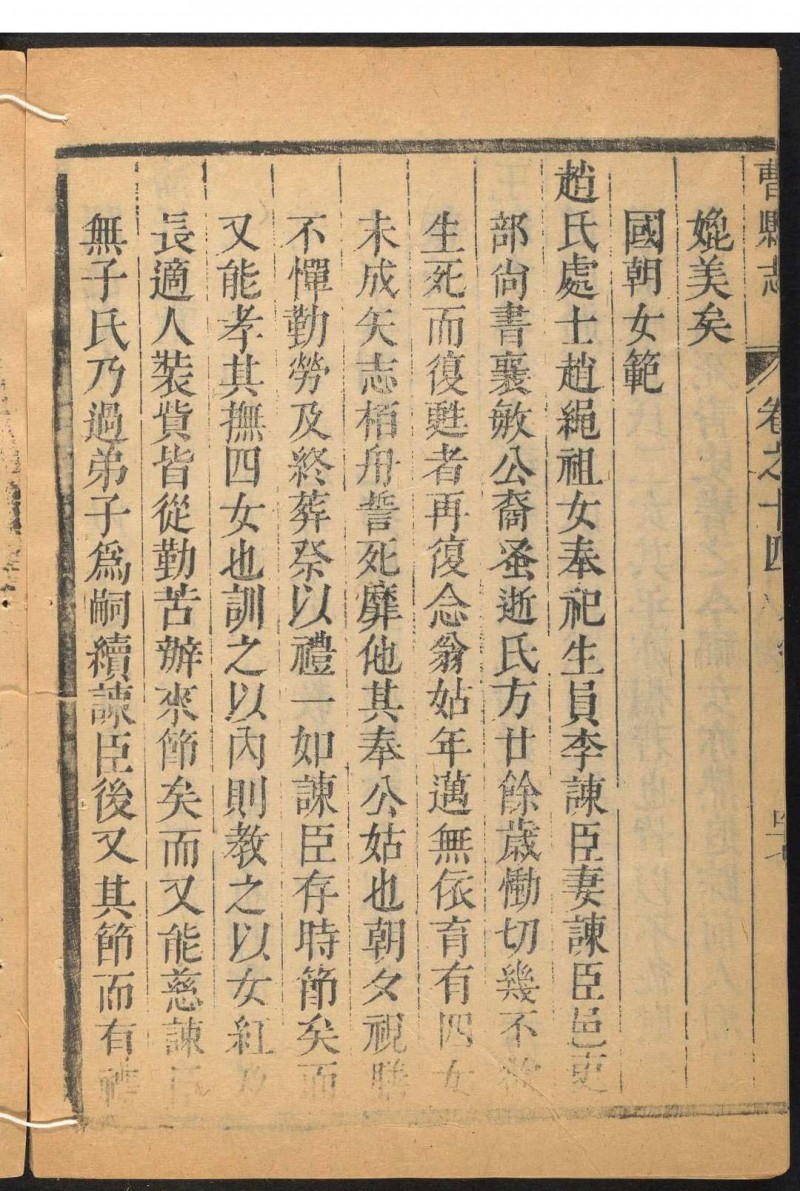 曹縣志 卷之十四
媲美矣
國朝女範
趙氏處士趙繩祖女奉祀生員李諫臣妻諫臣邑吏
部尙書襄敏公裔蚤逝氏方廿餘歲慟切幾不
生死而復甦者再復念翁姑年邁無依育有四女
未成矢志栢舟誓死靡他其奉公姑也朝夕視膳
不憚勤勞及終葬祭以禮一如諫臣存時節矣而
又能孝其撫四女也訓之以內則教之以女紅及
長適人裝貲皆從勤苦辦來節矣而又能慈諫臣
無子氏乃過弟子爲嗣續諫臣後又其節而有